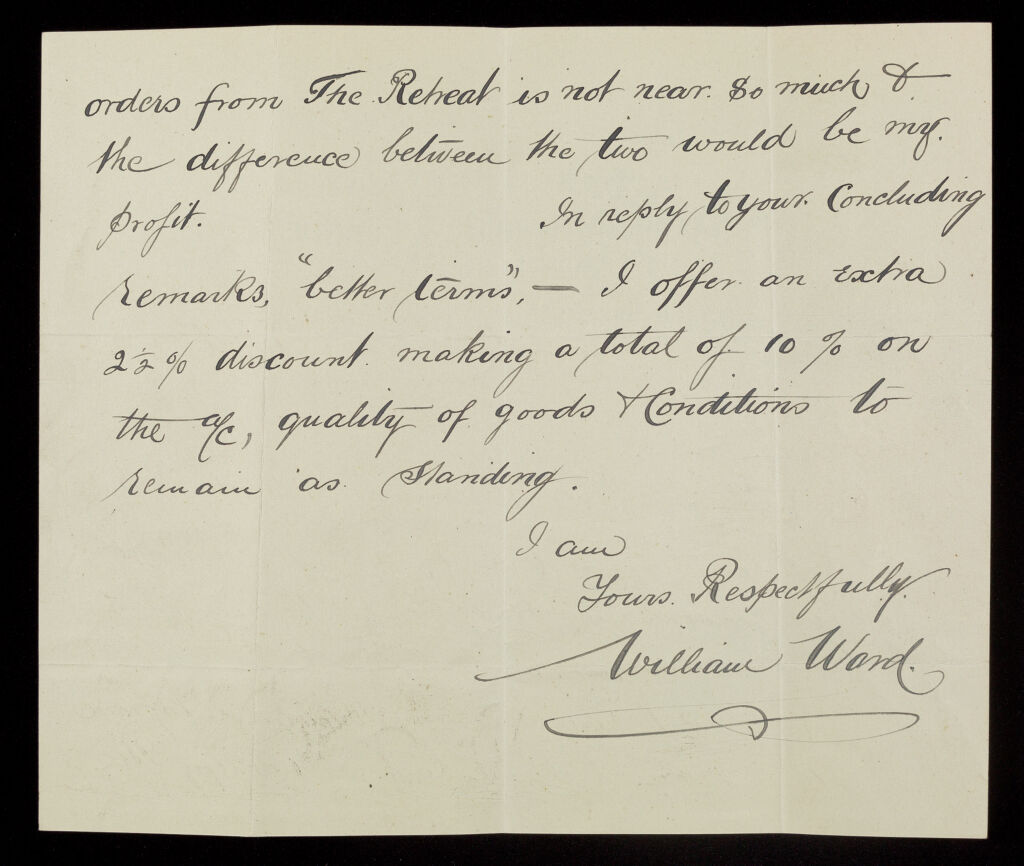 orders from The Retreat is not near so much &
the difference between the two would be my
profit. In reply to your Concluding
remarks, "better terms", — I offer an extra
2½ % discount making a total of 10 % on
the a/c, quality of goods & Conditions to
remain as Standing.
I am
Yours Respectfully
William Ward.